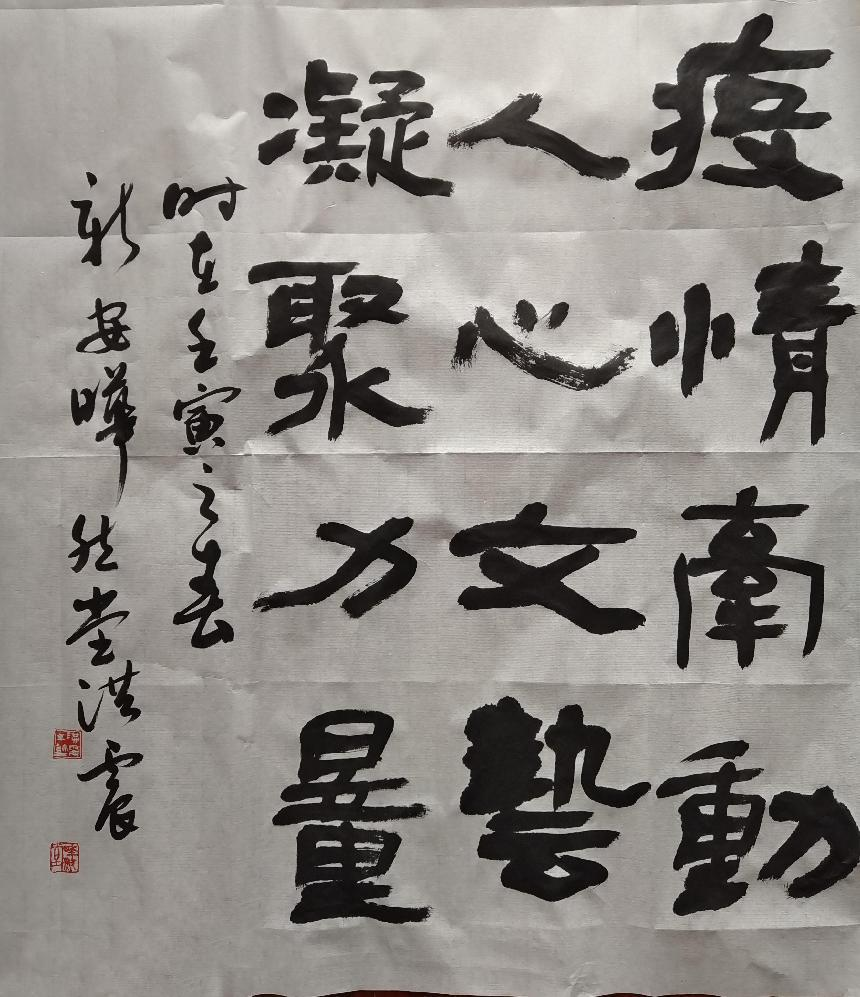 疫情牽動
人心文藝
凝聚力量
时在壬寅之春
新安曄然堂洪震